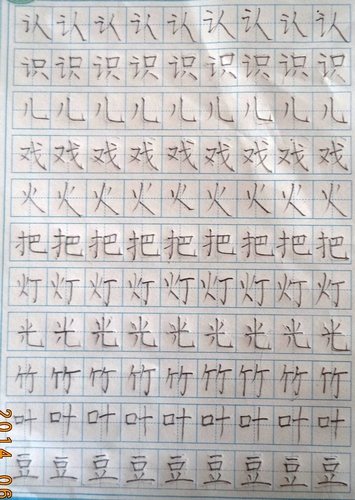 认认认认认认认认认
识识识识识识识识识
儿儿儿儿儿儿儿儿儿
戏戏戏戏戏戏戏戏戏
火火火火火火火火火
把把把把把把把把把
灯灯灯灯灯灯灯灯灯
光光光光光光光光光
竹竹竹竹竹竹竹竹竹
叶叶叶叶叶叶叶叶叶
豆豆豆豆豆豆豆豆豆
2014 06